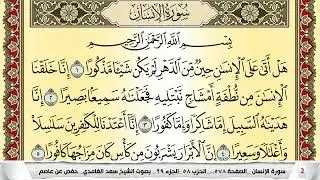 سُورَةُ الإِنسَانِ
بِسْمِ اللَّهِ الرَّحْمَٰنِ الرَّحِيمِ
هَلْ أَتَىٰ عَلَى الْإِنسَٰنِ حِينٌ مِّنَ الدَّهْرِ لَمْ يَكُن شَيْـًٔا مَّذْكُورًا ١ إِنَّا خَلَقْنَا
الْإِنسَٰنَ مِن نُّطْفَةٍ أَمْشَاجٍ نَّبْتَلِيهِ فَجَعَلْنَٰهُ سَمِيعًۢا بَصِيرًا ٢ إِنَّا
هَدَيْنَٰهُ السَّبِيلَ إِمَّا شَاكِرًا وَإِمَّا كَفُورًا ٣ إِنَّا أَعْتَدْنَا لِلْكَٰفِرِينَ سَلَٰسِلَا۟
وَأَغْلَٰلًا وَسَعِيرًا ٤ إِنَّ الْأَبْرَارَ يَشْرَبُونَ مِن كَأْسٍ كَانَ مِزَاجُهَا كَافُورًا ٥
2 سورة الإنسان .. الصفحة ٥٧٨ .. الحزب ٥٨ .. الجزء ٢٩ .. بصوت الشيخ سعد الغامدي .. حفص عن عاصم